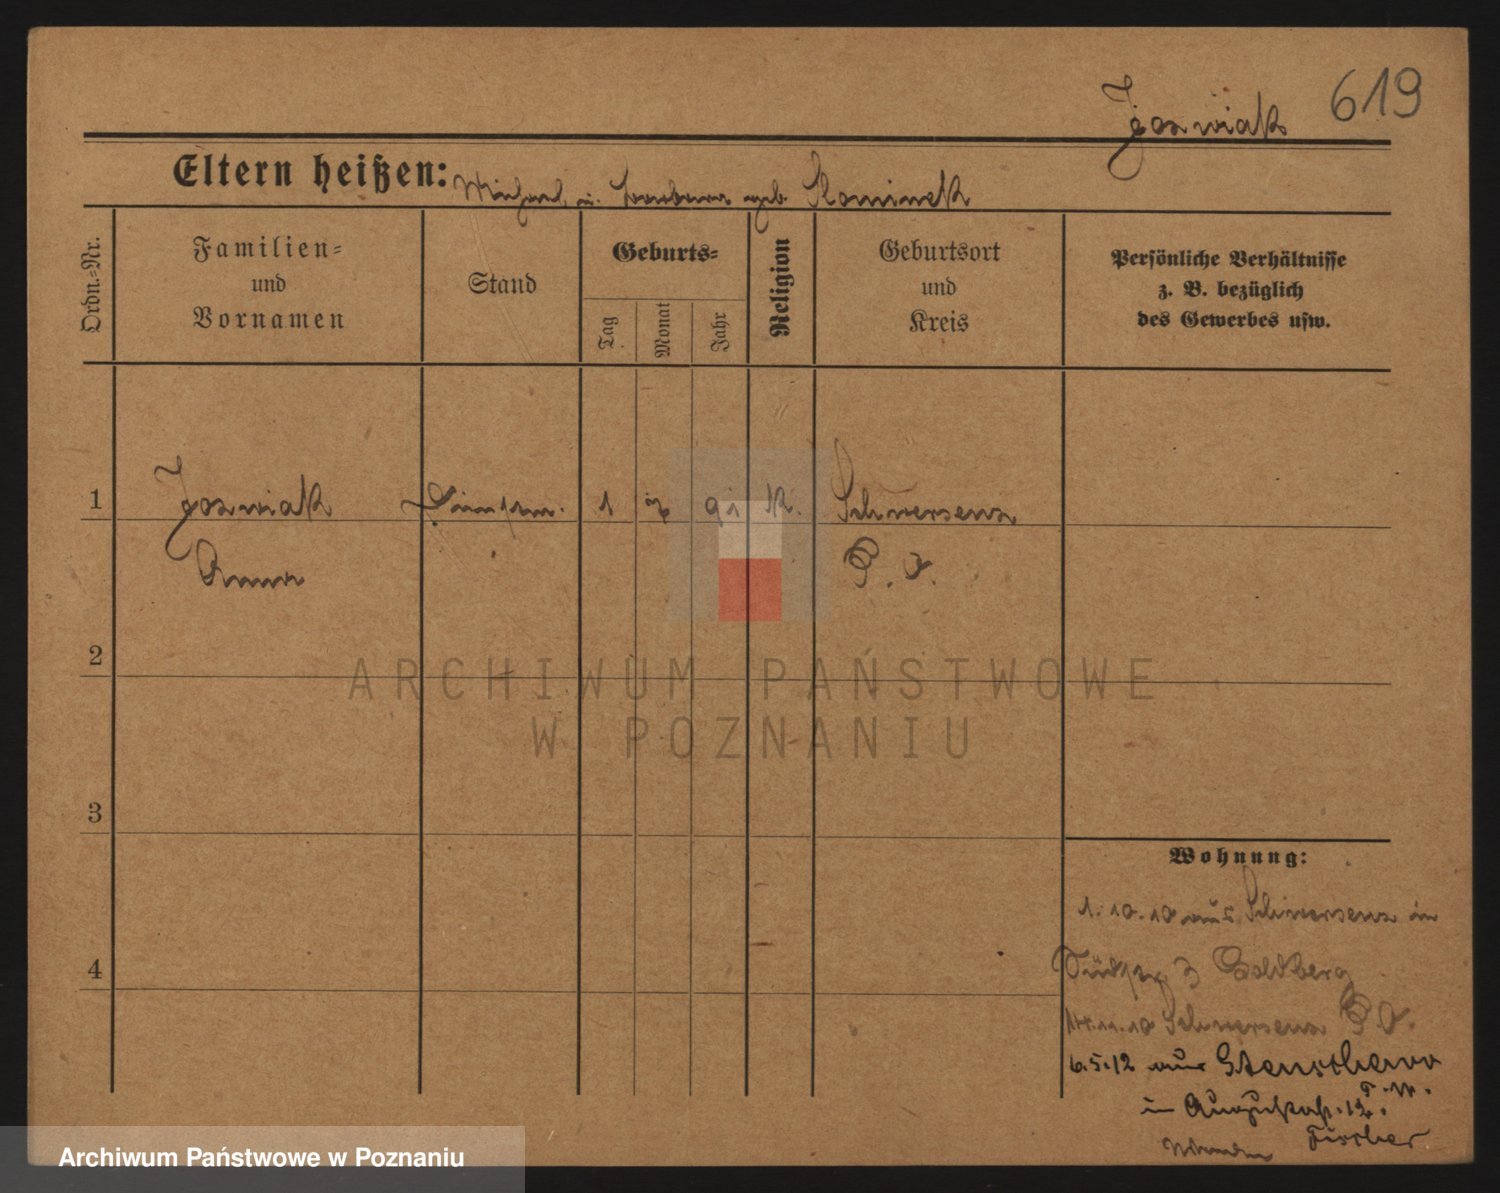 619
Joswiak
Eltern heißen: Michael u. Barbara geb. Slominek
Ordn.-Nr.
Familien-
und
Vornamen
Stand
Geburts-
Tag
Monat
Jahr
Religion
Geburtsort
und
Kreis
Persönliche Verhältnisse
z. B. bezüglich
des Gewerbes usw.
1 Joswiak 1 7 91 K. Schwersenz
Anna P. O.
2
ARCHIWUM PAŃSTWOWE
W POZNANIU
3
4
Wohnung:
1.10.10 aus Schwersenz in
3 Goldberg
14.11.10 Schwersenz P. O.
6.5.12 aus Stenschewo
P. W.
in Augustastr. 12.
Fischer
Archiwum Państwowe w Poznaniu